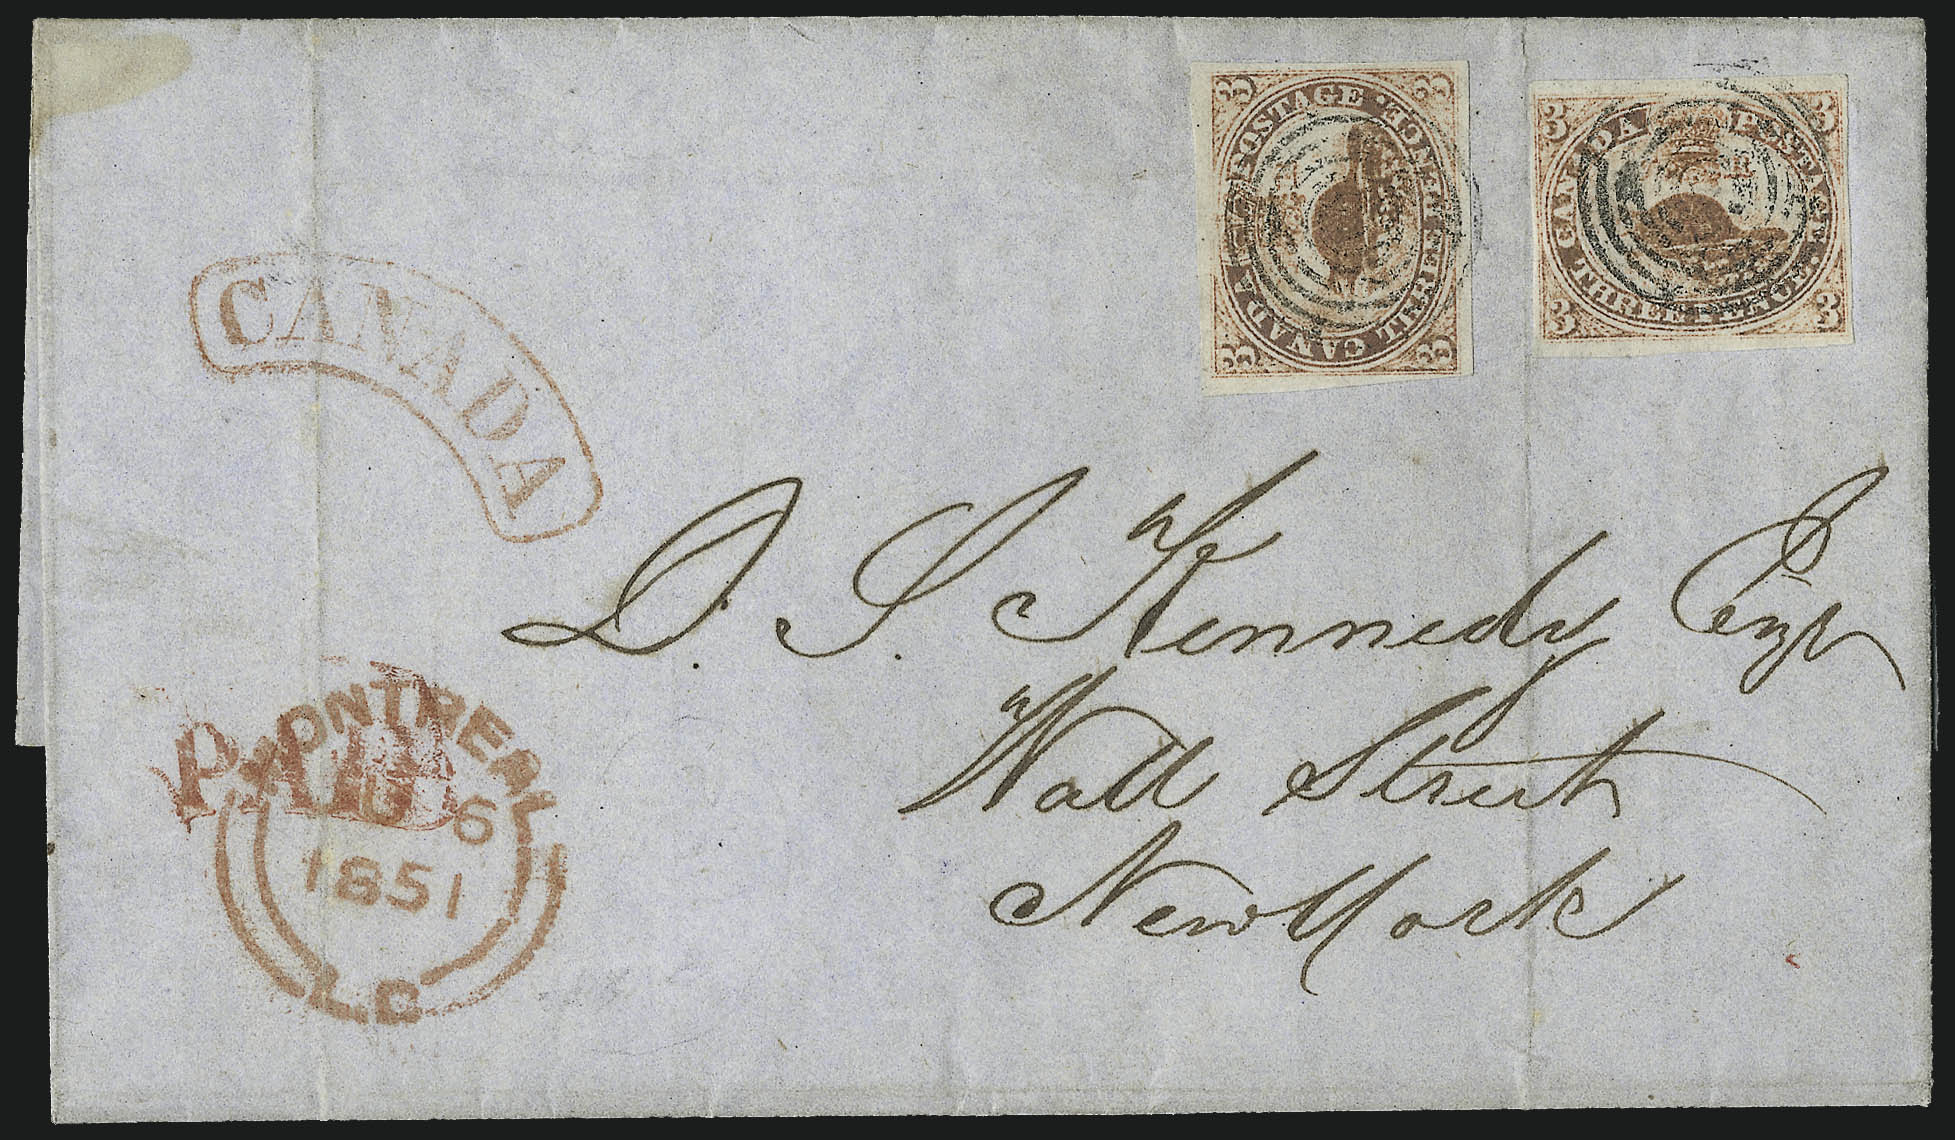 3 3
CANADA POSTAGE
THREE PENCE
3 3
3 3
CANADA POSTAGE
THREE PENCE
3 3
CANADA
D. S. Kennedy Esqr
Wall Street
New York
PAID
MONTREAL
6
1851
L.C